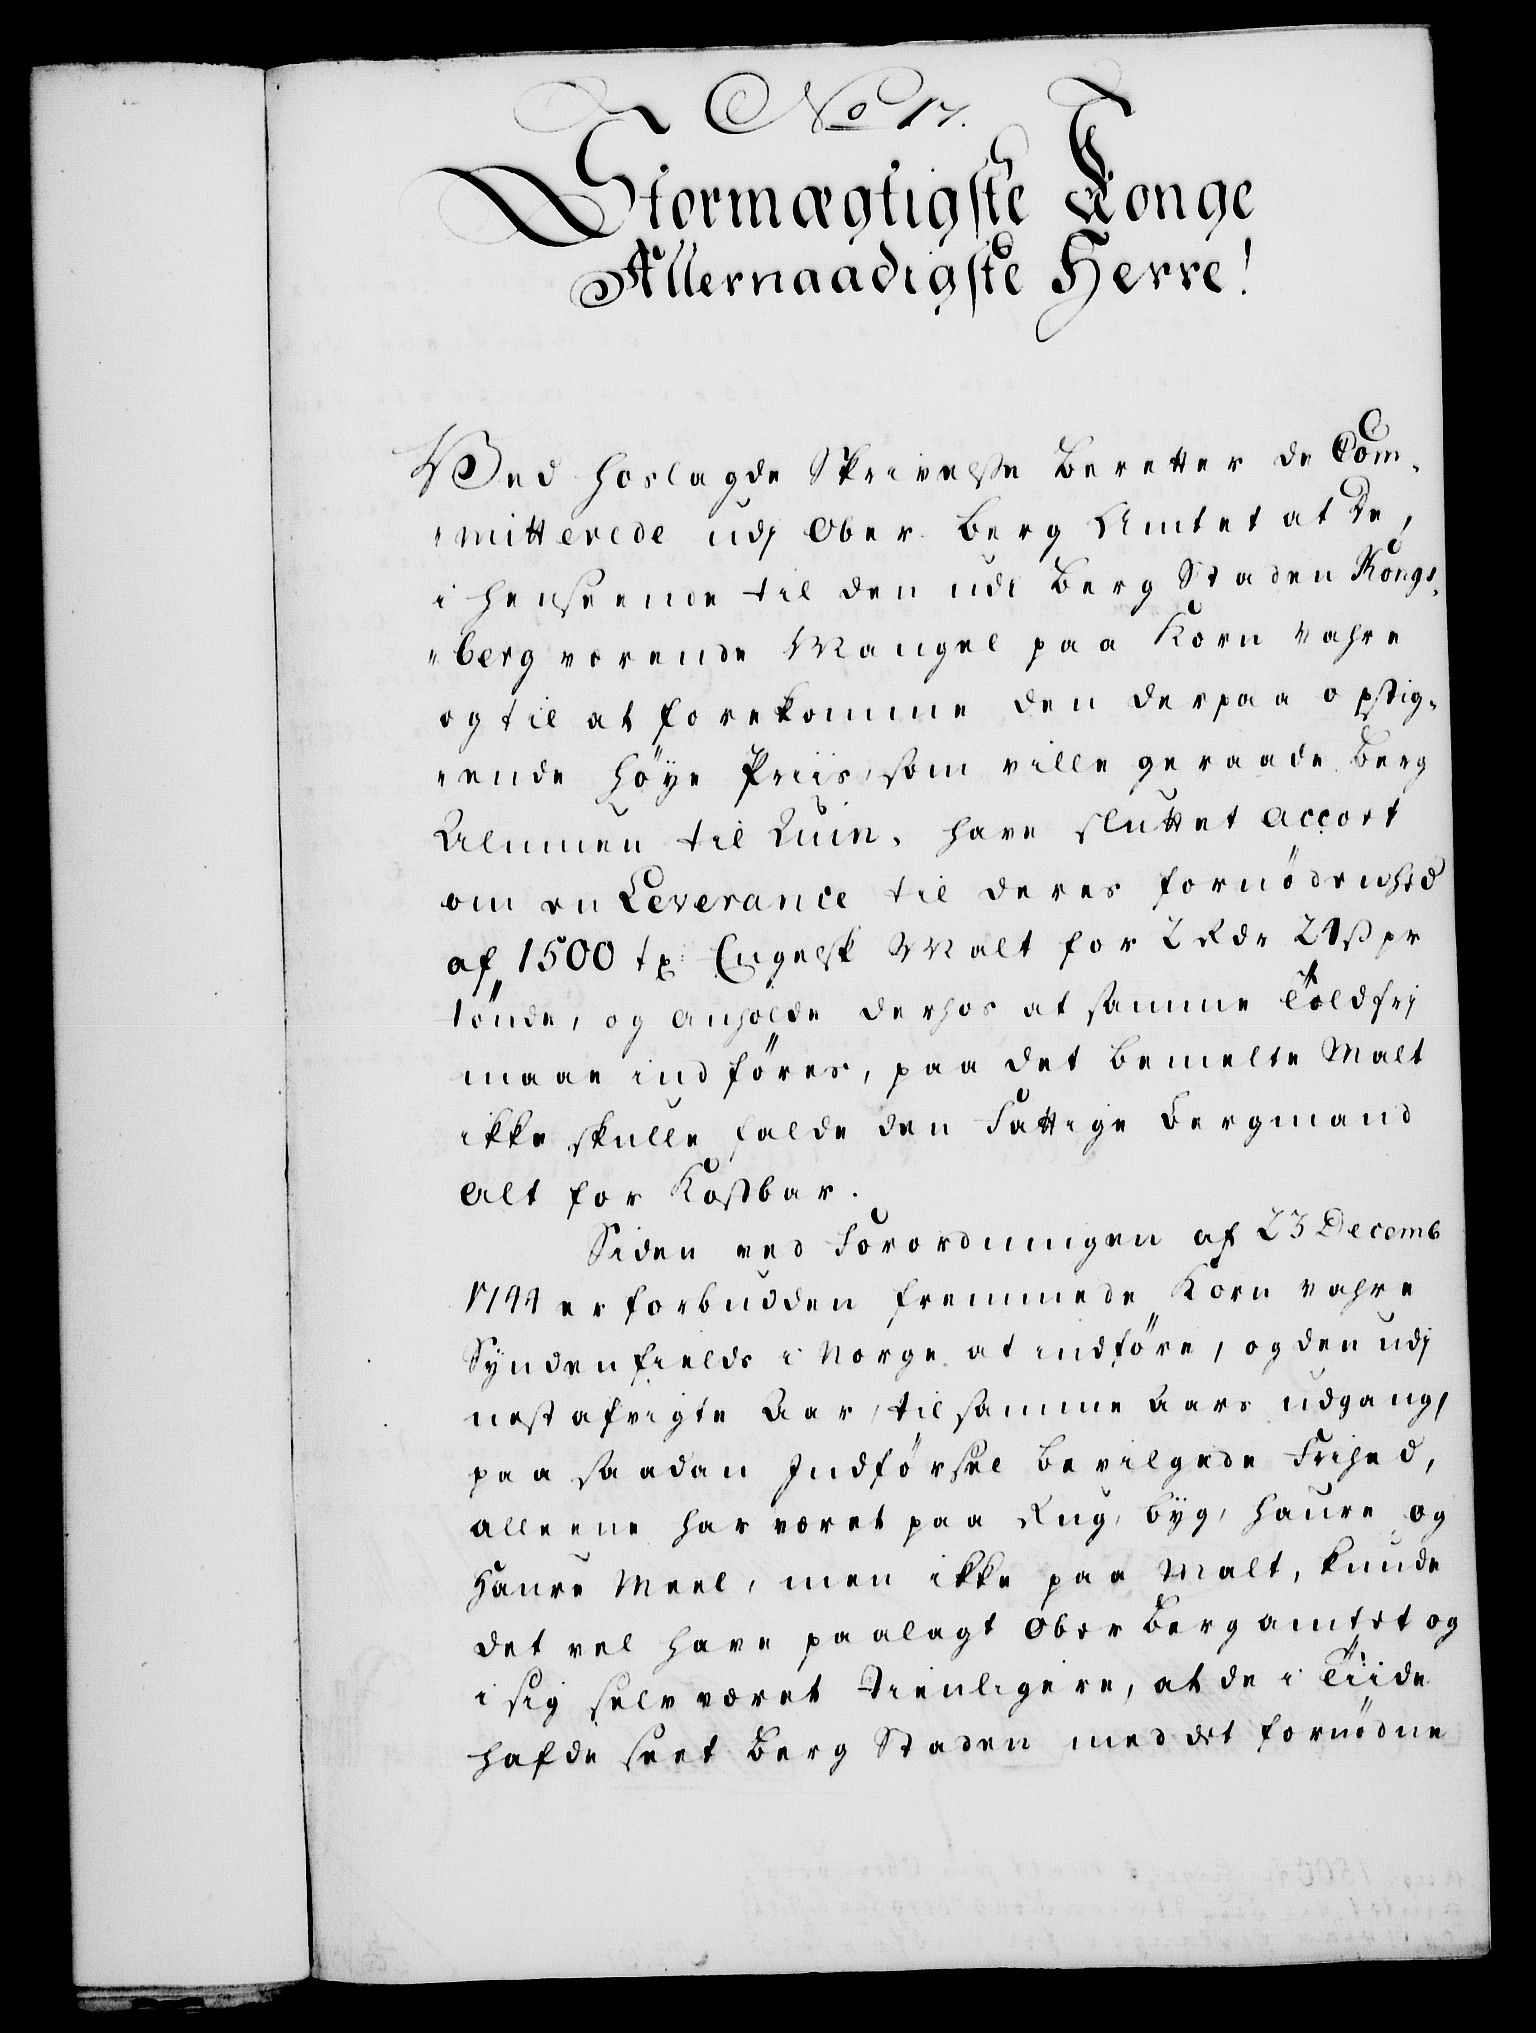 No 17.
Stormægtigste Konge
Allernaadigste Herre!
Ved hoslagde Skrivelse beretter de Com„
„mitterede udj Ober Berg Amtet at De,
i henseende til den udi Berg Staden Kongs„
„berg værende Mangel paa Korn vahre
og til at forekomme den derpaa opstig„
„ende höye Priis, som ville geraade Berg
Almuen til Ruin, have sluttet accort
om en Leverance til deres fornödenhed
af 1500 tr: Engelsk Malt for 2 Rdr 24 ß pr
tönde, og anholde derhos at samme Toldfrj
maae indföres, paa det bemelte Malt
ikke skulle falde den Fattige Bergmand
alt for Kostbar.
Siden ved Forordningen af 23 Decemb
1744 er forbudden fremmede Korn vahre
Syndenfields i Norge at indföre, og den udj
nest afvigte Aar, til samme Aars udgang,
paa saadan Indförsel bevilgede Frihed,
alleene har været paa Rug, byg, haure og
Haure Meel, men ikke paa Malt, kunde
det vel have paalagt Ober Bergamtet og
i sig selv været tienligere, at de i Tiide
hafde seet Berg Staden med det fornödne